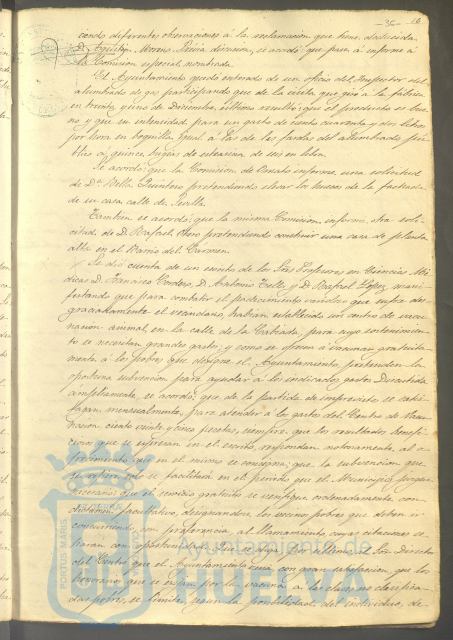 -36- 16
ciendo diferentes observaciones á la reclamacion que tiene deducida
D. Agustin Moreno. Prévia discusion, se acordó: que pasen á informe á
la Comision especial nombrada.
El Ayuntamiento quedó enterado de un oficio del Inspector del
alumbrado de gas participando que de la visita que giró á la fábrica
en treinta y uno de Diciembre último resulta: que el producto es bue-
no y que su intensidad, para un gasto de ciento cuarenta y dos litros
por hora en boquilla igual á las de los faroles del alumbrado pú-
blico á quince bugías de estearina de seis en libra.
Se acordó: que la Comision de Ornato informe una solicitud
de Dª Bella Quintero pretendiendo elevar los huecos de la fachada
de su casa calle de Sevilla.
Tambien se acordó: que la misma Comision informe otra soli-
citud de D. Rafael Otero pretendiendo construir una casa de planta
alta en el Barrio del Carmen.
Se dió cuenta de un escrito de los Sres Profesores en Ciencias Mé-
dicas D. Francisco Cordero, D. Antonio Tello y D. Rafael Lopez, mani-
festando que para combatir el padecimiento varioloso que sufre des-
graciadamente el vecindario, habian establecido un centro de vacu-
nacion animal, en la calle de la para cuyo sostenimien-
to se necesitan grandes gastos; y como se ofrecen á vacunar gratuita-
mente á los pobres que designe el Ayuntamiento, pretenden la
oportuna subvencion para ayudar á los indicados gastos. Discutida
ampliamente, se acordó: que de la partida de imprevistos se satis-
fagan, mensualmente, para atender á los gastos del Centro de Vacu-
nacion ciento veinte y cinco pesetas, siempre que los resultados benefi-
ciosos que se esperan en el escrito, respondan notoriamente al o-
frecimiento que en el mismo se consigna; que la subvencion que
se refiere solo se facilitará en el periodo que el Municipio juzgue
necesario: que el servicio gratuito se verifique ordenadamente con
dictámen facultativo, designándose los vecinos pobres que deban ir
concurriendo con preferencia al llamamiento cuyas citaciones se
harán con oportunidad. Que se diga por último, al Sor Director
del Centro que el Ayuntamiento veria con gran satisfaccion, que los
honorarios que se exijan por la vacuna á las clases no clasifica-
das pobres, se limiten segun la posibilidad del individuo, de-
Ayuntamiento de
HUELVA
PORTUS MARIS